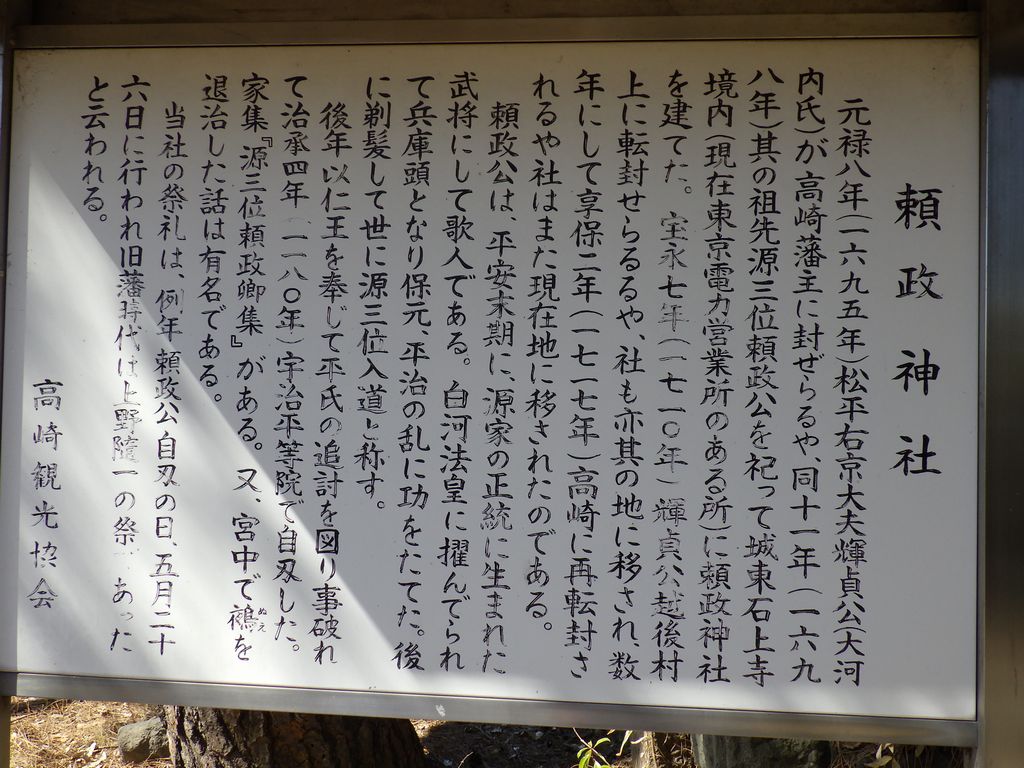 頼政神社
元禄八年(一六九五年)松平右京大夫輝貞公(大河
内氏)が高崎藩主に封ぜらるや、同十一年(一六九
八年)其の祖先源三位頼政公を祀って城東石上寺
境内(現在東京電力営業所のある所)に頼政神社
を建てた。宝永七年(一七一〇年)輝貞公越後村
上に転封せらるるや、社も亦其の地に移され、数
年にして享保二年(一七一七年)高崎に再転封さ
れるや社はまた現在地に移されたのである。
頼政公は、平安末期に、源家の正統に生まれた
武将にして歌人である。白河法皇に擢んでられ
て兵庫頭となり保元、平治の乱に功をたてた。後
に剃髪して世に源三位入道と称す。
後年以仁王を奉じて平氏の追討を図り事破れ
て治承四年(一一八〇年)宇治平等院で自刃した。
家集『源三位頼政卿集』がある。又、宮中で鵺ぬえを
退治した話は有名である。
当社の祭礼は、例年頼政公自刃の日、五月二十
六日に行われ旧藩時代は上野随一の祭 あった
と云われる。
高崎観光協会